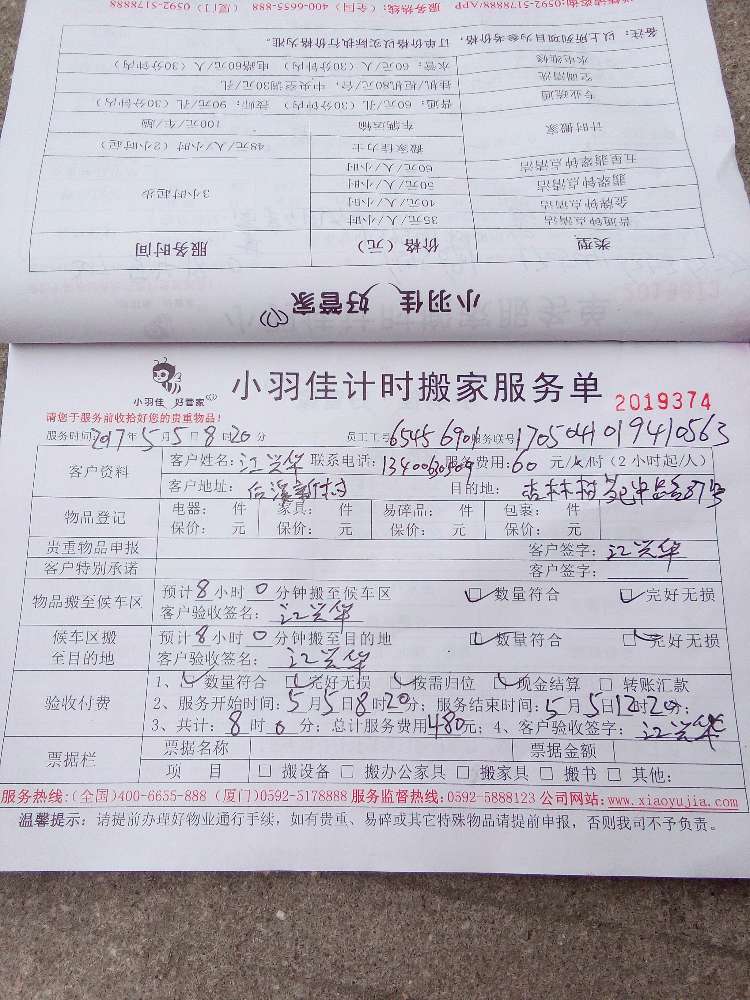 咨询:0592-5178888/APP 服务热线:(全国)400-6655-888 (厦门)0592-5178
备注:以上所列项目为参考价格,订单价格以实际执行价格为准。
水电维修 水管:60元/人(30分钟内) 电路60元/人(30分钟内)
空调清洗 挂机柜机80元/台,中央空调30元/孔
专业疏通 普通:60元/孔(30分钟内) 技师:90元/孔(30分钟内)
计时搬家 车辆运输 100元/车/趟
搬家佳力士 48元/人/小时(2小时起)
五星翡翠钟点清洁 60元/人/小时
翡翠钟点清洁 50元/人/小时 3小时起步
金牌钟点清洁 40元/人/小时
普通钟点清洁 35元/人/小时
类型 价格(元) 服务时间
小羽佳 好管家
小羽佳 好管家
小羽佳计时搬家服务单
2019374
请您于服务前收拾好您的贵重物品!
服务时间:2017年5月5日8时20分 员工工号:6545 6901 服务联号:1705041019410563
客户资料 客户姓名:江兴华 联系电话:13400630509 服务费用:60元/人/时(2小时起/人)
客户地址: 目的地:杏林村 87号
物品登记 电器: 件 家具: 件 易碎品: 件 包裹: 件
保价: 元 保价: 元 保价: 元 保价: 元
贵重物品申报 客户签字:江兴华
客户特别承诺 客户签字:
物品搬至候车区 预计8小时0分钟搬至候车区 数量符合 完好无损
客户验收签名:江兴华
候车区搬至目的地 预计8小时0分钟搬至目的地 数量符合 完好无损
客户验收签名:江兴华
验收付费 1、数量符合 完好无损 按需归位 现金结算 转账汇款
2、服务开始时间:5月5日8时20分;服务结束时间:5月5日12时20分;
3、共计:8时0分;总计服务费用480元;4、客户验收签字:江兴华
票据栏 票据名称 票据金额
项 目 搬设备 搬办公家具 搬家具 搬书 其他:
服务热线:(全国)400-6655-888 (厦门)0592-5178888 服务监督热线:0592-5888123 公司网站:www.xiaoyujia.com
温馨提示:请提前办理好物业通行手续,如有贵重、易碎或其它特殊物品请提前申报,否则我司不予负责。